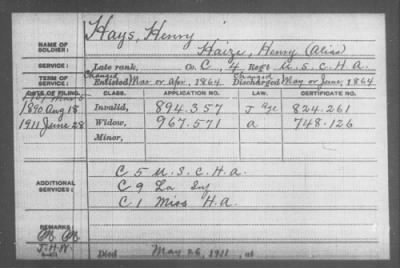 Hays, Henry
NAME OF SOLDIER: Haize, Henry (Alias)
SERVICE: Late rank, Co. C, 4 Regt U.S.C.H.A.
TERM OF SERVICE: Enlisted Mar or Apr, 1864 Discharged May or June, 1864
DATE OF FILING. CLASS. APPLICATION NO. LAW. CERTIFICATE NO.
1890 Aug 18 Invalid, 894.357 J 824.261
1911 June 28 Widow, 967.571 a 748.126
Minor,
C 5 U.S.C.H.A.
ADDITIONAL SERVICES: C 9 La Inf
C 1 Miss H.A.
REMARKS:
Died May 26, 1911, at